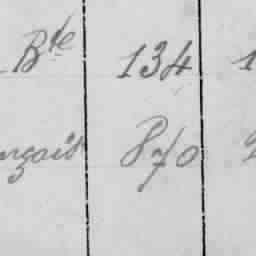 Bte 134 1
nçais 870